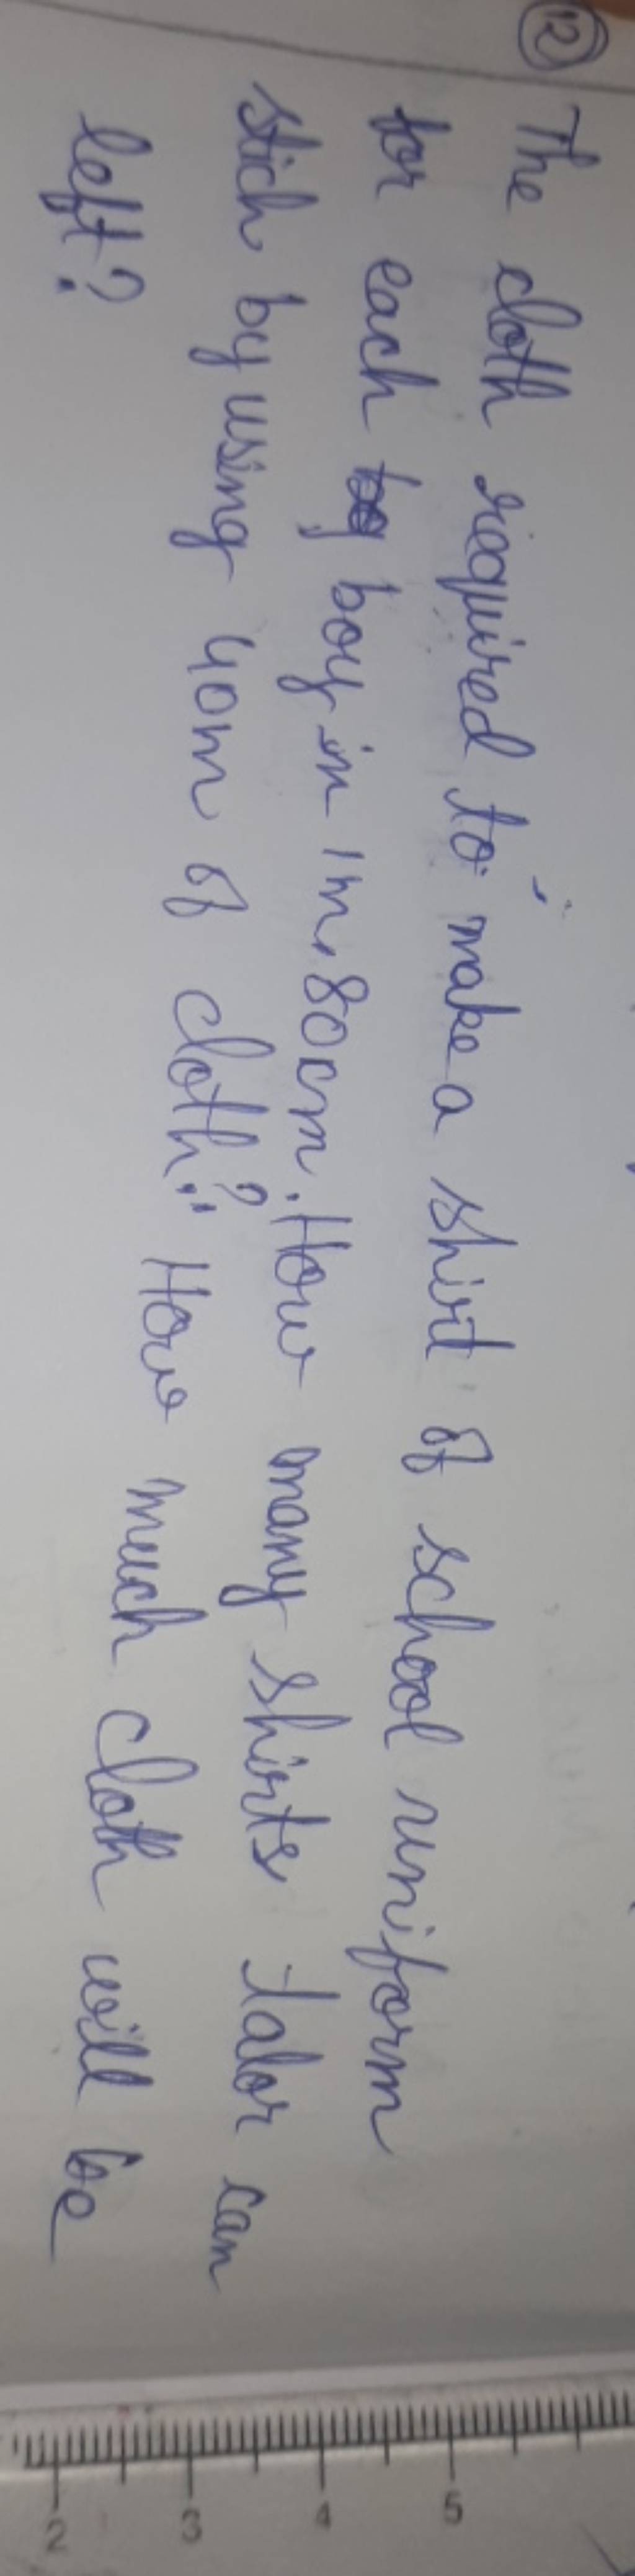 12 The cloth required to make a shirt of school uniform
for each boy in 1m, 80cm. How many shirts talor can
stich by using 40m of cloth? How much cloth will be
left?
2 3 4 5